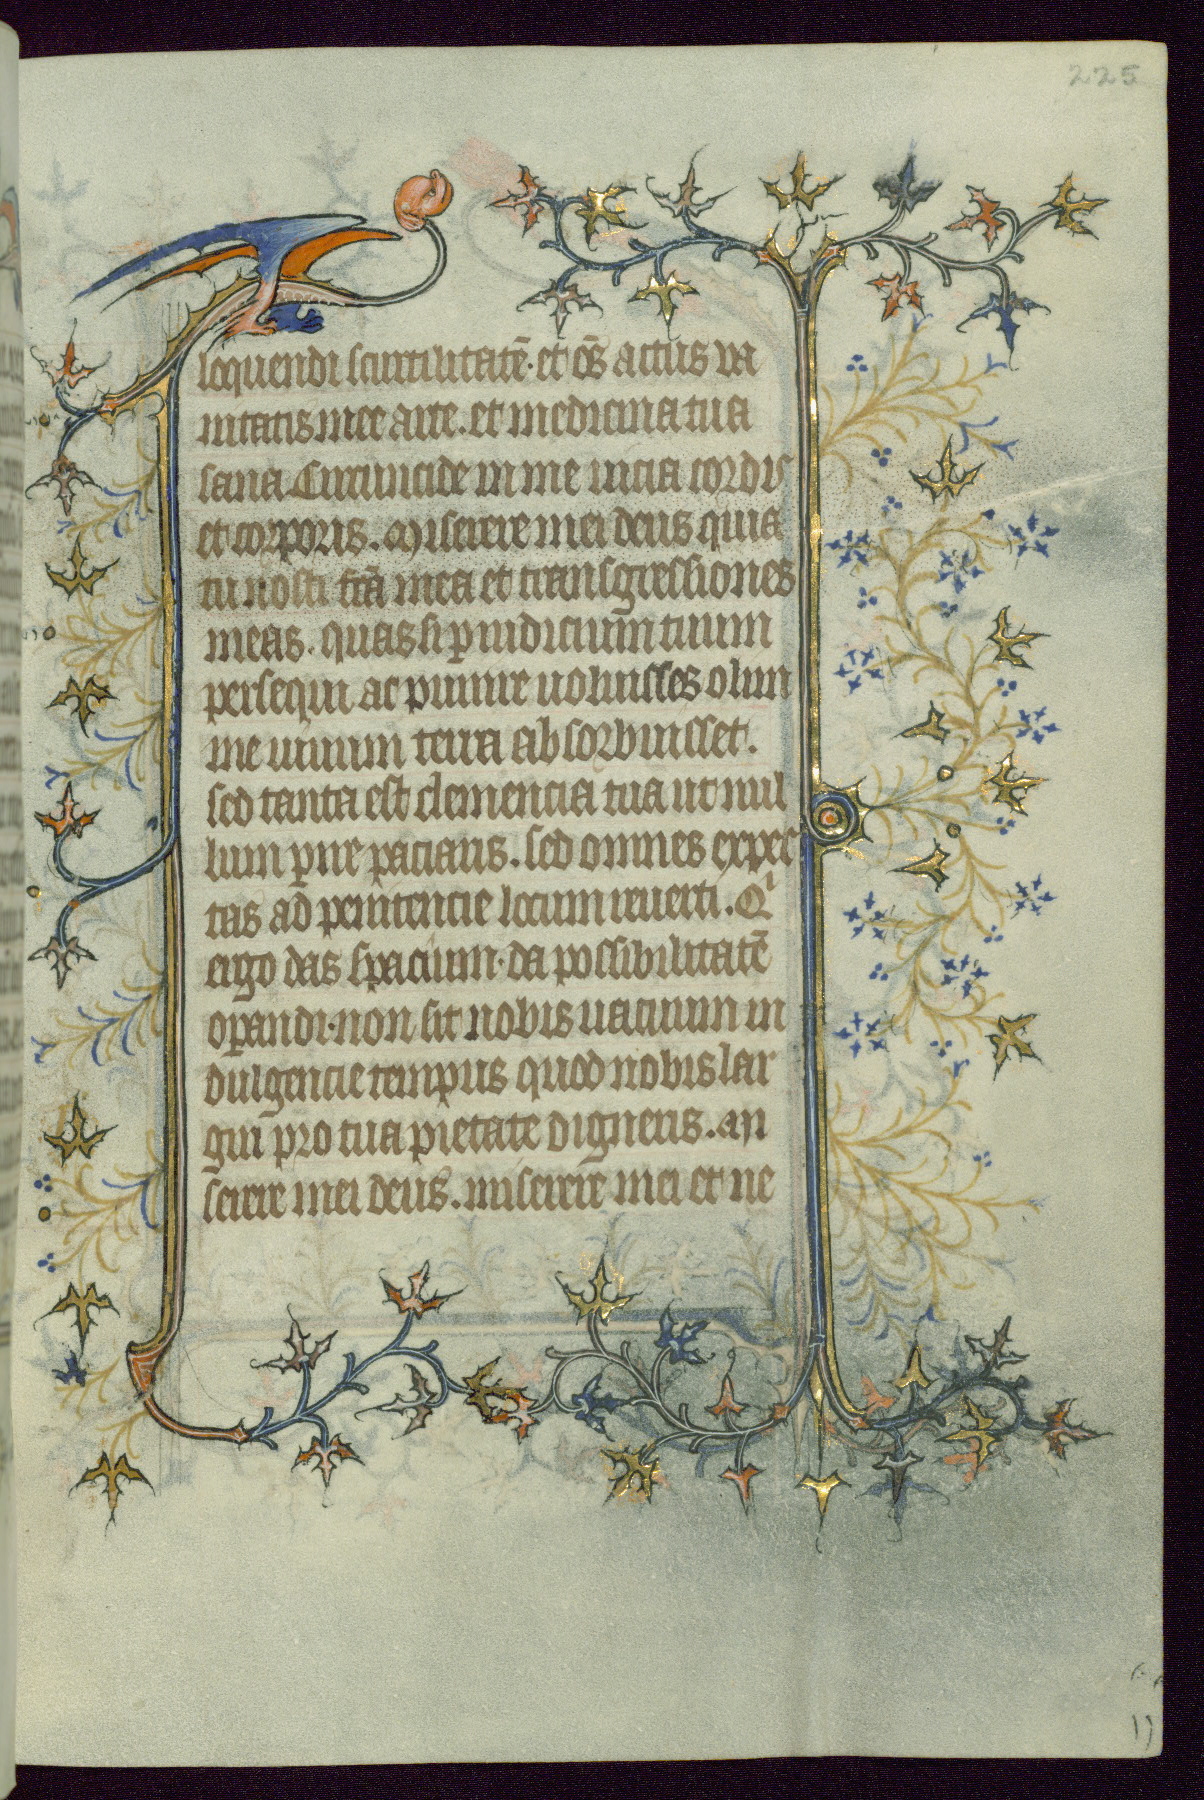 225
loquendi scurrilitatē. et oēs actus va
nitatis mee arte. et medicina tua
sana. Circuncide in me uicia cordis
et corporis. Miserere mei deus quia
tu nosti scā mea et transgressiones
meas. quas si p iudicium tuum
persequi ac punire uoluisses olim
me uiuum terra absorbuisset.
sed tanta est clemencia tua ut nul
lum pire paciaris. sed omnes expec
tas ad penitencie locum reuerti. Qͥ
ergo das spacium. da possibilitatē
operandi. non sit nobis uacuum in
dulgencie tempus quod nobis lar
giri pro tua pietate digneris. Mi
serere mei deus. miserere mei et ne